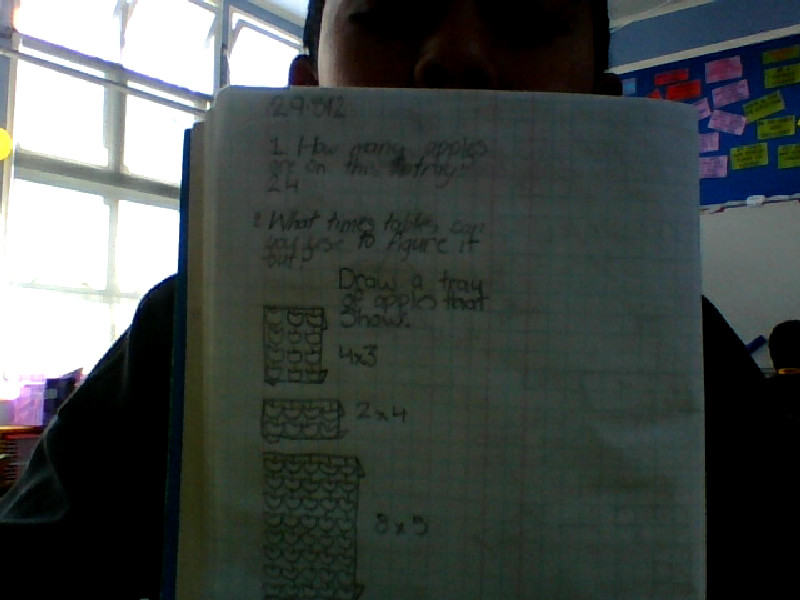 29.8.12
1. How many apples
are on this tray?
24
2. What times tables can
you use to figure it
out?
Draw a tray
of apples that
Show.
4x3
2x4
8x5